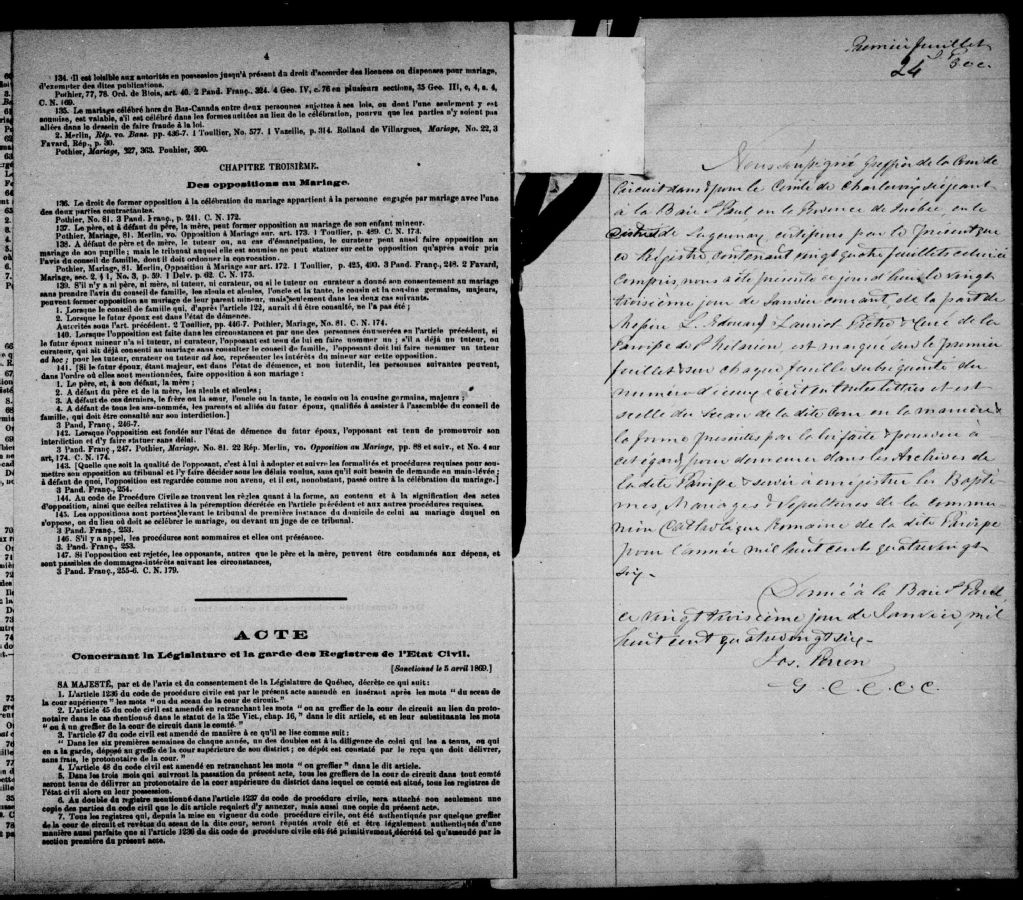 4
134. Il est loisible aux autorités en possession jusqu'à présent du droit d'accorder des licences ou dispenses pour mariage,
d'exempter des dites publications.
Pothier, 77, 78. Ord. de Blois, art. 40. 2 Pand. Franç., 324. 4 Geo. IV, c. 76 en plusieurs sections, 35 Geo. III, c, 4, s. 4,
C. N. 169.
135. Le mariage célébré hors du Bas-Canada entre deux personnes sujettes à ses lois, ou dont l'une seulement y est
soumise, est valable, s'il est célébré dans les formes usitées au lieu de la célébration, pourvu que les parties n'y soient pas
allées dans le dessein de faire fraude à la loi.
2. Merlin, Rép. vo. Bans. pp. 436-7. 1 Toullier, No. 577. 1 Vazeille, p. 314. Rolland de Villargues, Mariage, No. 22, 3
Favard, Rép., p. 30.
Pothier, Mariage, 327, 363. Pouhier, 390.
CHAPITRE TROISIÈME.
Des oppositions au Mariage.
136. Le droit de former opposition à la célébration du mariage appartient à la personne engagée par mariage avec l'une
des deux parties contractantes.
Pothier, No. 81. 3 Pand. Franç., p. 241. C. N. 172.
137. Le père, et à défaut du père, la mère, peut former opposition au mariage de son enfant mineur.
Pothier, Mariage, 81. Merlin, vo. Opposition à Mariage sur. art. 173. 1 Toullier, p. 489. C. N. 173.
138. A défaut de père et de mère, le tuteur ou, au cas d'émancipation, le curateur peut aussi faire opposition au
mariage de son pupille; mais le tribunal auquel elle est soumise ne peut statuer sur cette opposition qu'après avoir pris
l'avis du conseil de famille, dont il doit ordonner la convocation.
Pothier, Mariage, 81. Merlin, Opposition à Mariage sur art. 172. 1 Toullier, p. 425, 493. 3 Pand. Franç., 248. 2 Favard,
Mariage, sec. 2, § 1, No. 3, p. 59. 1 Delv. p. 62. C. N. 175.
139. S'il n'y a ni père, ni mère, ni tuteur, ni curateur, ou si le tuteur ou curateur a donné son consentement au mariage
sans prendre l'avis du conseil de famille, les aïeuls et aïeules, l'oncle et la tante, le cousin et la cousine germains, majeurs,
peuvent former opposition au mariage de leur parent mineur, mais seulement dans les deux cas suivants.
1. Lorsque le conseil de famille qui, d'après l'article 122, aurait dû être consulté, ne l'a pas été;
2. Lorsque le futur époux est dans l'état de démence.
Autorités sous l'art. précédent. 2 Toullier, pp. 446-7. Pothier, Mariage, No. 81. C. N. 174.
140. Lorsque l'opposition est faite dans les circonstances et par une des personnes énumérées en l'article précédent, si
le futur époux mineur n'a ni tuteur, ni curateur, l'opposant est tenu de lui en faire nommer un; s'il a déjà un tuteur, ou
curateur, qui ait déjà consenti au mariage sans consulter le conseil de famille, l'opposant doit lui faire nommer un tuteur
ad hoc; pour les tuteur, curateur ou tuteur ad hoc, représenter les intérêts du mineur sur cette opposition.
141. [Si le futur époux, étant majeur, est dans l'état de démence, et non interdit, les personnes suivantes peuvent,
dans l'ordre où elles sont mentionnées, faire opposition à son mariage:
1. Le père, et, à son défaut, la mère;
2. A défaut du père et de la mère, les aïeuls et aïeules;
3. A défaut de ces derniers, le frère ou la sœur, l'oncle ou la tante, le cousin ou la cousine germains, majeurs;
4. A défaut de tous les sus-nommés, les parents et alliés du futur époux, qualifiés à assister à l'assemblée du conseil de
famille, qui doit être consulté sur son interdiction.]
3 Pand. Franç., 246-7.
142. Lorsque l'opposition est fondée sur l'état de démence du futur époux, l'opposant est tenu de promouvoir son
interdiction et d'y faire statuer sans délai.
3 Pand. Franç., 247. Pothier, Mariage, No. 81. 22 Rép. Merlin, vo. Opposition au Mariage, pp. 88 et suiv., et No. 4 sur
art, 174. C. N. 174.
143. [Quelle que soit la qualité de l'opposant, c'est à lui à adopter et suivre les formalités et procédures requises pour sou-
mettre son opposition au tribunal et l'y faire décider sous les délais voulus, sans qu'il soit besoin de demande en main-levée;
à défaut de quoi, l'opposition est regardée comme non avenu, et il est, nonobstant, passé outre à la célébration du mariage.]
3 Pand. Franç., 254.
144. Au code de Procédure Civile se trouvent les règles quant à la forme, au contenu et à la signification des actes
d'opposition, ainsi que celles relatives à la péremption décrétée en l'article précédent et aux autres procédures requises.
145. Les oppositions sont portées devant le tribunal de première instance du domicile de celui au mariage duquel on
s'oppose, ou du lieu où doit se célébrer le mariage, ou devant un juge de ce tribunal.
3 Pand. Franç., 253.
146. S'il y a appel, les procédures sont sommaires et elles ont préséance.
3. Pand. Franç., 253.
147. Si l'opposition est rejetée, les opposants, autres que le père et la mère, peuvent être condamnés aux dépens, et
sont passibles de dommages-intérêts suivant les circonstances,
3 Pand. Franç., 255-6. C. N. 179.
ACTE
Concernant la Législature et la garde des Registres de l'Etat Civil.
[Sanctionné le 5 avril 1869.]
SA MAJESTÉ, par et de l'avis et du consentement de la Législature de Québec, décrète ce qui suit:
1. L'article 1236 du code de procédure civile est par le présent acte amendé en insérant après les mots "du sceau de
la cour supérieure" les mots "ou du sceau de la cour de circuit."
2. L'article 45 du code civil est amendé en retranchant les mots "on au greffier de la cour de circuit au lieu du proto-
notaire dans le cas mentionné dans le statut de la 25e Vict., chap. 16," dans le dit article, et en leur substituants les mots
"ou à un greffier de la cour de circuit dans le comté."
3. l'article 47 du code civil est amendé de manière à ce qu'il se lise comme suit:
"Dans les six premières semaines de chaque année, un des doubles est à la diligence de celui qui les a tenus, ou qui
en a la garde, déposé au greffe de la cour supérieure de son district; ce dépôt est constaté par le reçu que doit délivrer,
sans frais, le protonotaire de la cour."
4. L'article 48 du code civil est amendé en retranchant les mots "ou greffier" dans le dit article.
5. Dans les trois mois qui suivront la passation du présent acte, tous les greffiers de la cour de circuit dans tout comté
seront tenus de délivrer au protonotaire de la cour supérieure du district dans lequel ce comté est situé, tous les registres de
l'état civil alors en leur possession.
6. Au double du registre mentionné dans l'article 1237 du code de procédure civile, sera attaché non seulement une
copie des parties du code civil que le dit article requiert d'y annexer, mais aussi une copie du présent acte.
7. Tous les registres qui, depuis la mise en vigueur du code procédure civile, ont été authentiqués par quelque greffier
de la cour de circuit et revêtus du sceau de la dite cour, seront réputés avoir été et être légalement authentiqués d'une
manière aussi parfaite que si l'article 1236 du dit code de procédure civile eût été primitivement décrété tel qu'amendé par la
section première du présent acte.
Premier feuillet
24
Nous soussigné Greffier de la Cour de
Circuit dans & pour le Comté de Charlevoix siégeant
à la Baie St Paul en la Province de Québec en le
District de Saguenay certifions par le présent que
ce Registre contenant vingt quatre feuillets celui ci
compris nous a été présenté ce jourd'hui le vingt
troisième jour de Janvier courant de la part de
Messire L. Edouard Lauriot Prêtre & Curé de la
Paroisse de St Hilarion est marqué sur le premier
feuillet & sur chaque feuille subséquente du
numéro d'iceux écrit en toutes lettres et est
scellé du Sceau de la dite Cour en la manière &
la forme prescrites par la loi faite & pourvue à
cet égard, pour demeurer dans les Archives de
la dite Paroisse & servir à enregistrer les Baptê-
mes, Mariages & Sépultures de la commu-
nion Catholique Romaine de la dite Paroisse
pour l'année mil huit cent quatre vingt
six.
Donné à la Baie St Paul,
ce vingt troisième jour de Janvier, mil
huit cent quatre vingt six.
Jos. Perron
G. C. C. C. C.